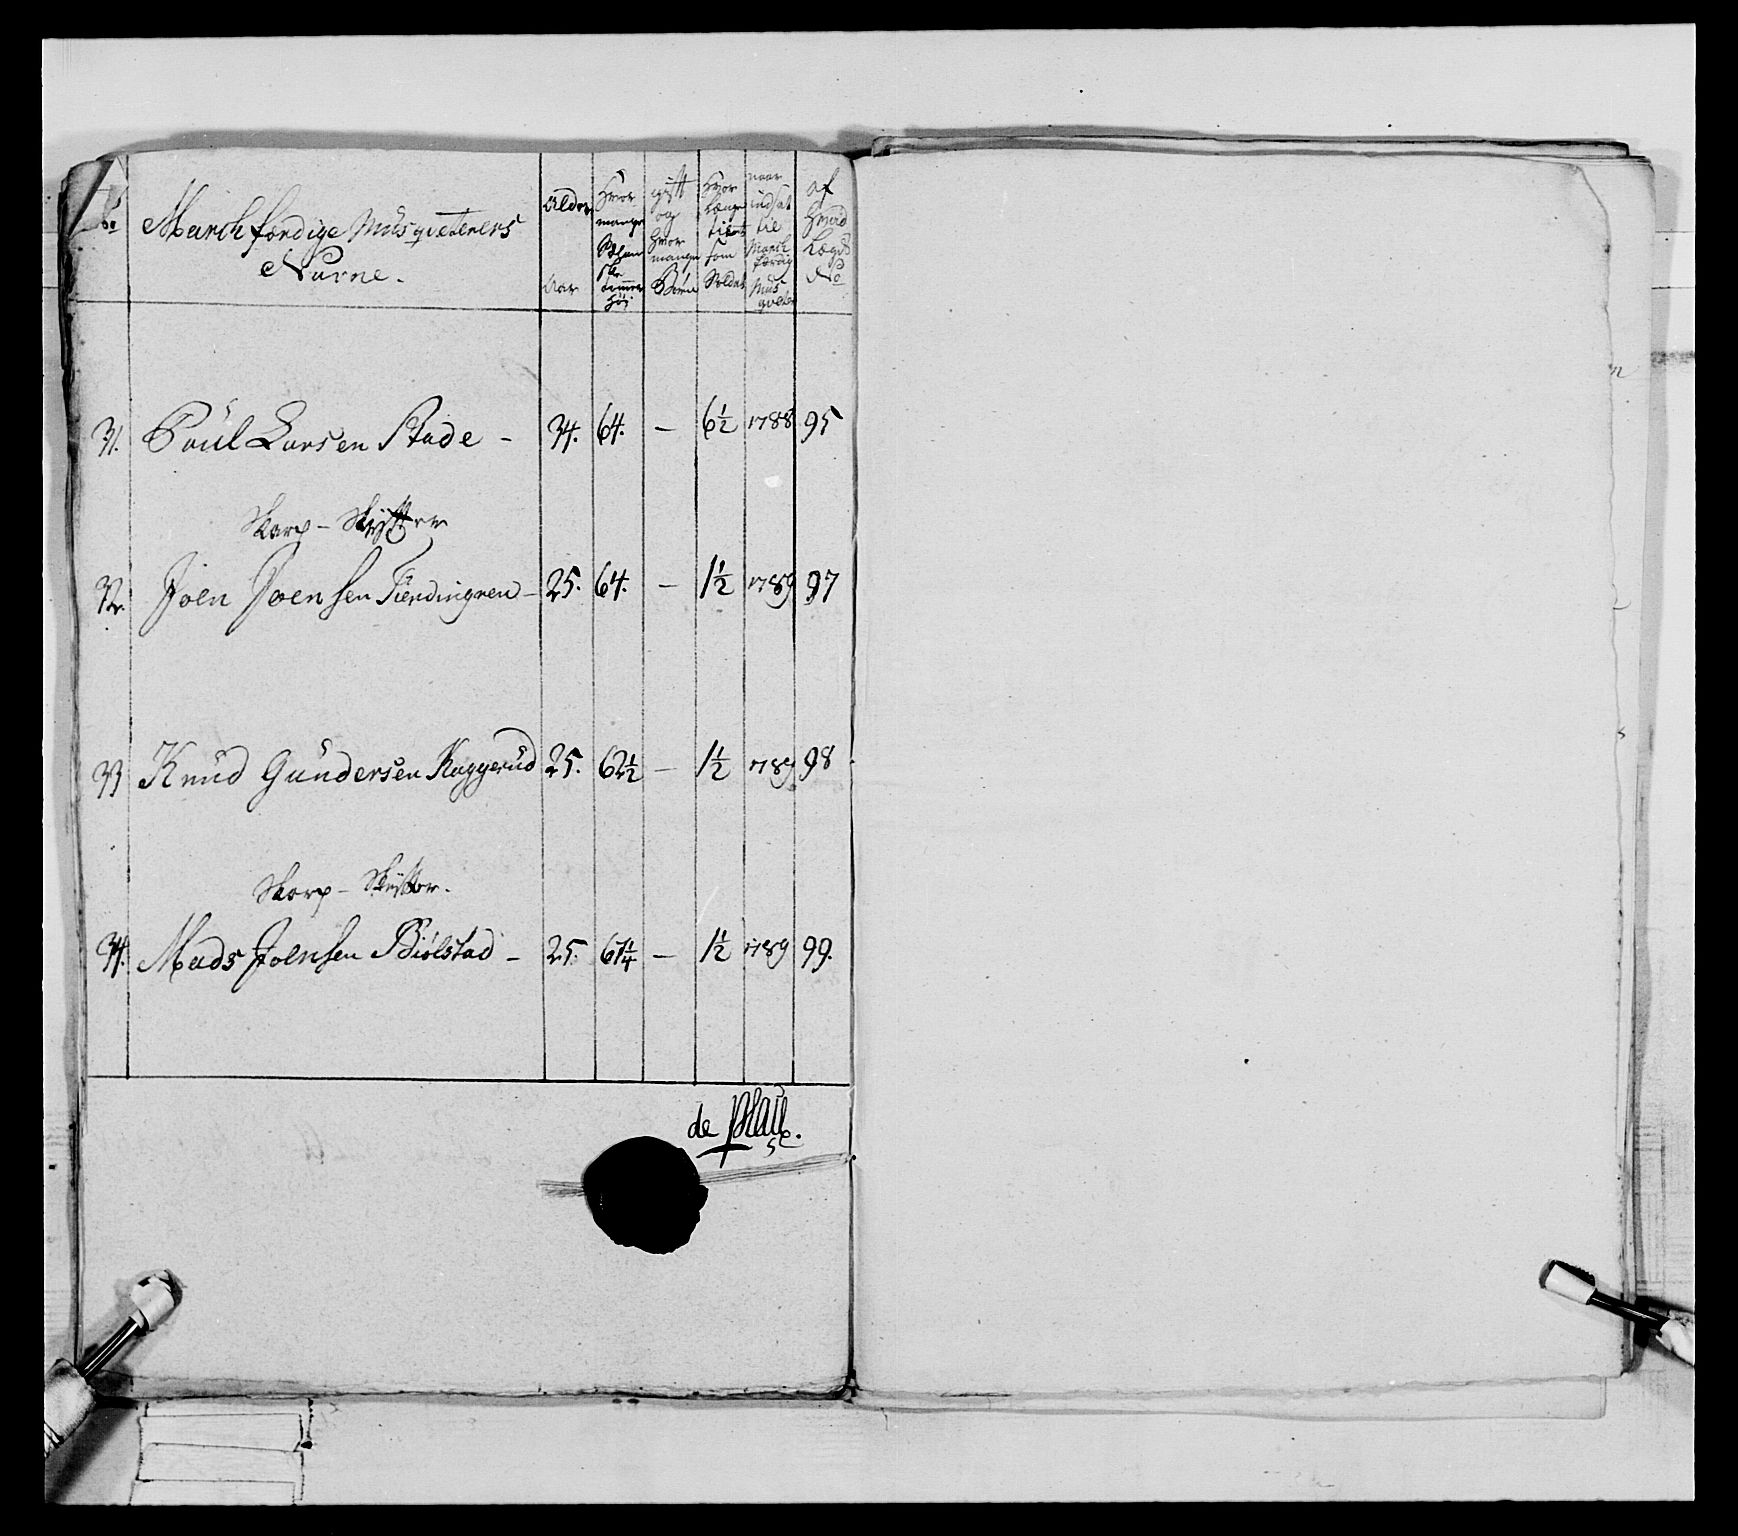 No
March færdige Musqveterers
Navne.
Alder
Aar
Hvor mange
tommer
Høj
gift og hvor mange Børn
Hvor længe tient som Soldat
naar indsat til March færdig Musqveter
af hvad Lægd No
31. Poul Larsen Stade - 34. 64. - 6½ 1788 95
Skarp-Skytter
32. Joen Joensen Tierdingren - 25. 64. - 1½ 1789 97
33 Knud Gundersen Kaggerud 25. 62½ - 1½ 1789 98
Skarp-Skytter.
34. Mads Joensen Biølstad - 25. 67¼ - 1½ 1789 99.
de